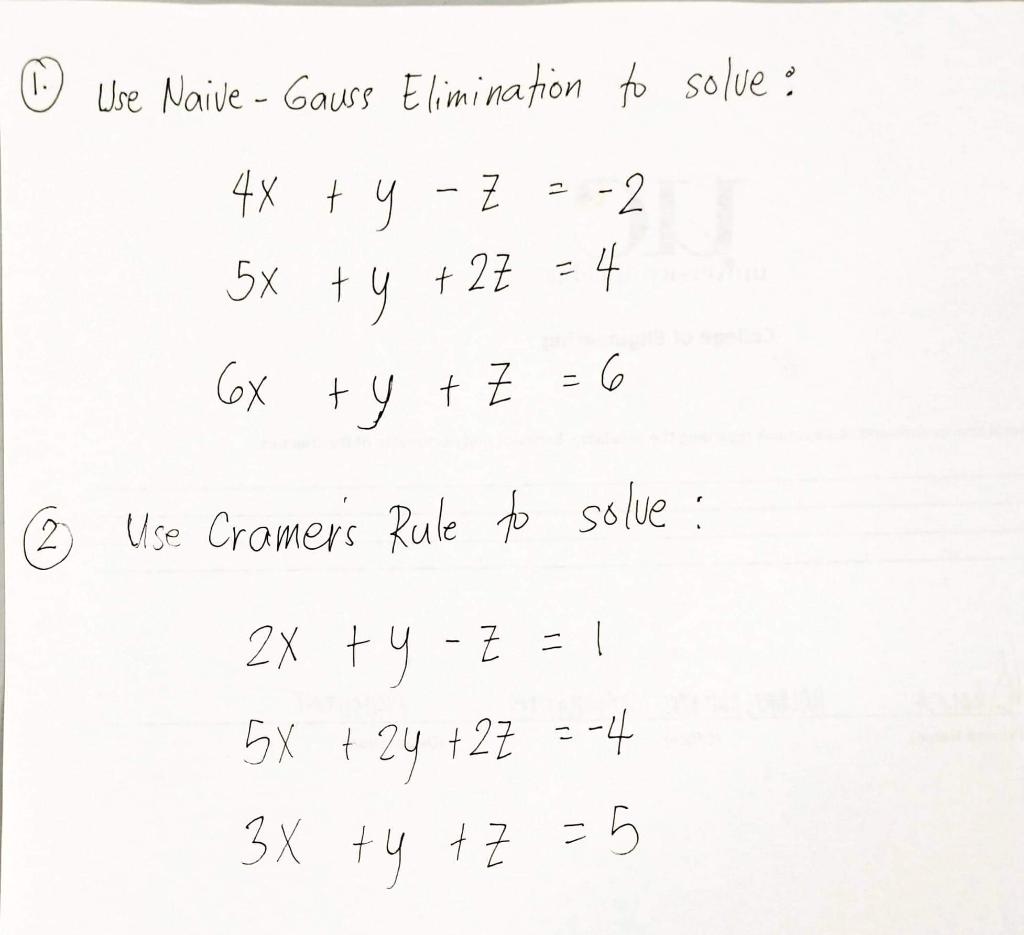 1. Use Naive - Gauss Elimination to solve :
4x + y - z = -2
5x + y + 2z = 4
6x + y + z = 6
2 Use Cramer's Rule to solve :
2x + y - z = 1
5x + 2y + 2z = -4
3x + y + z = 5